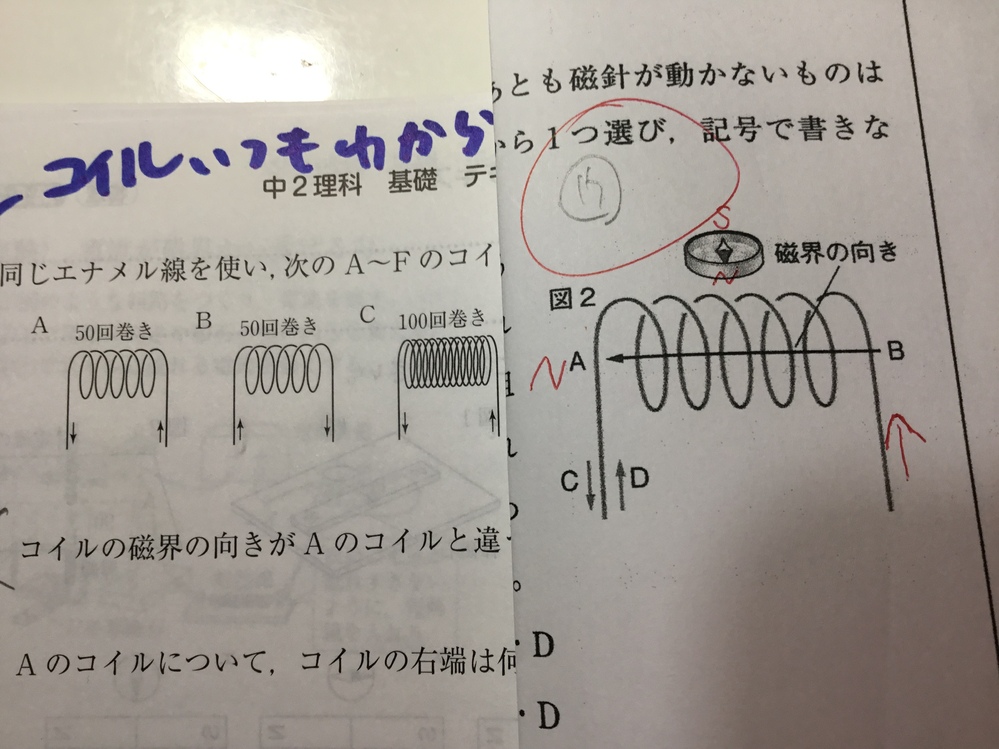 コイルいつもわから
中2理科 基礎 テキ
同じエナメル線を使い，次のA～Fのコイ
A 50回巻き B 50回巻き C 100回巻き
コイルの磁界の向きがAのコイルと違
Aのコイルについて，コイルの右端は何
とも磁針が動かないものは
ら1つ選び，記号で書きな
S
N
磁界の向き
図2
N A B
C D
・D
・D